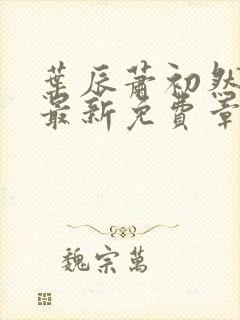 葉辰蕭初然
最新免費章
魏宗萬